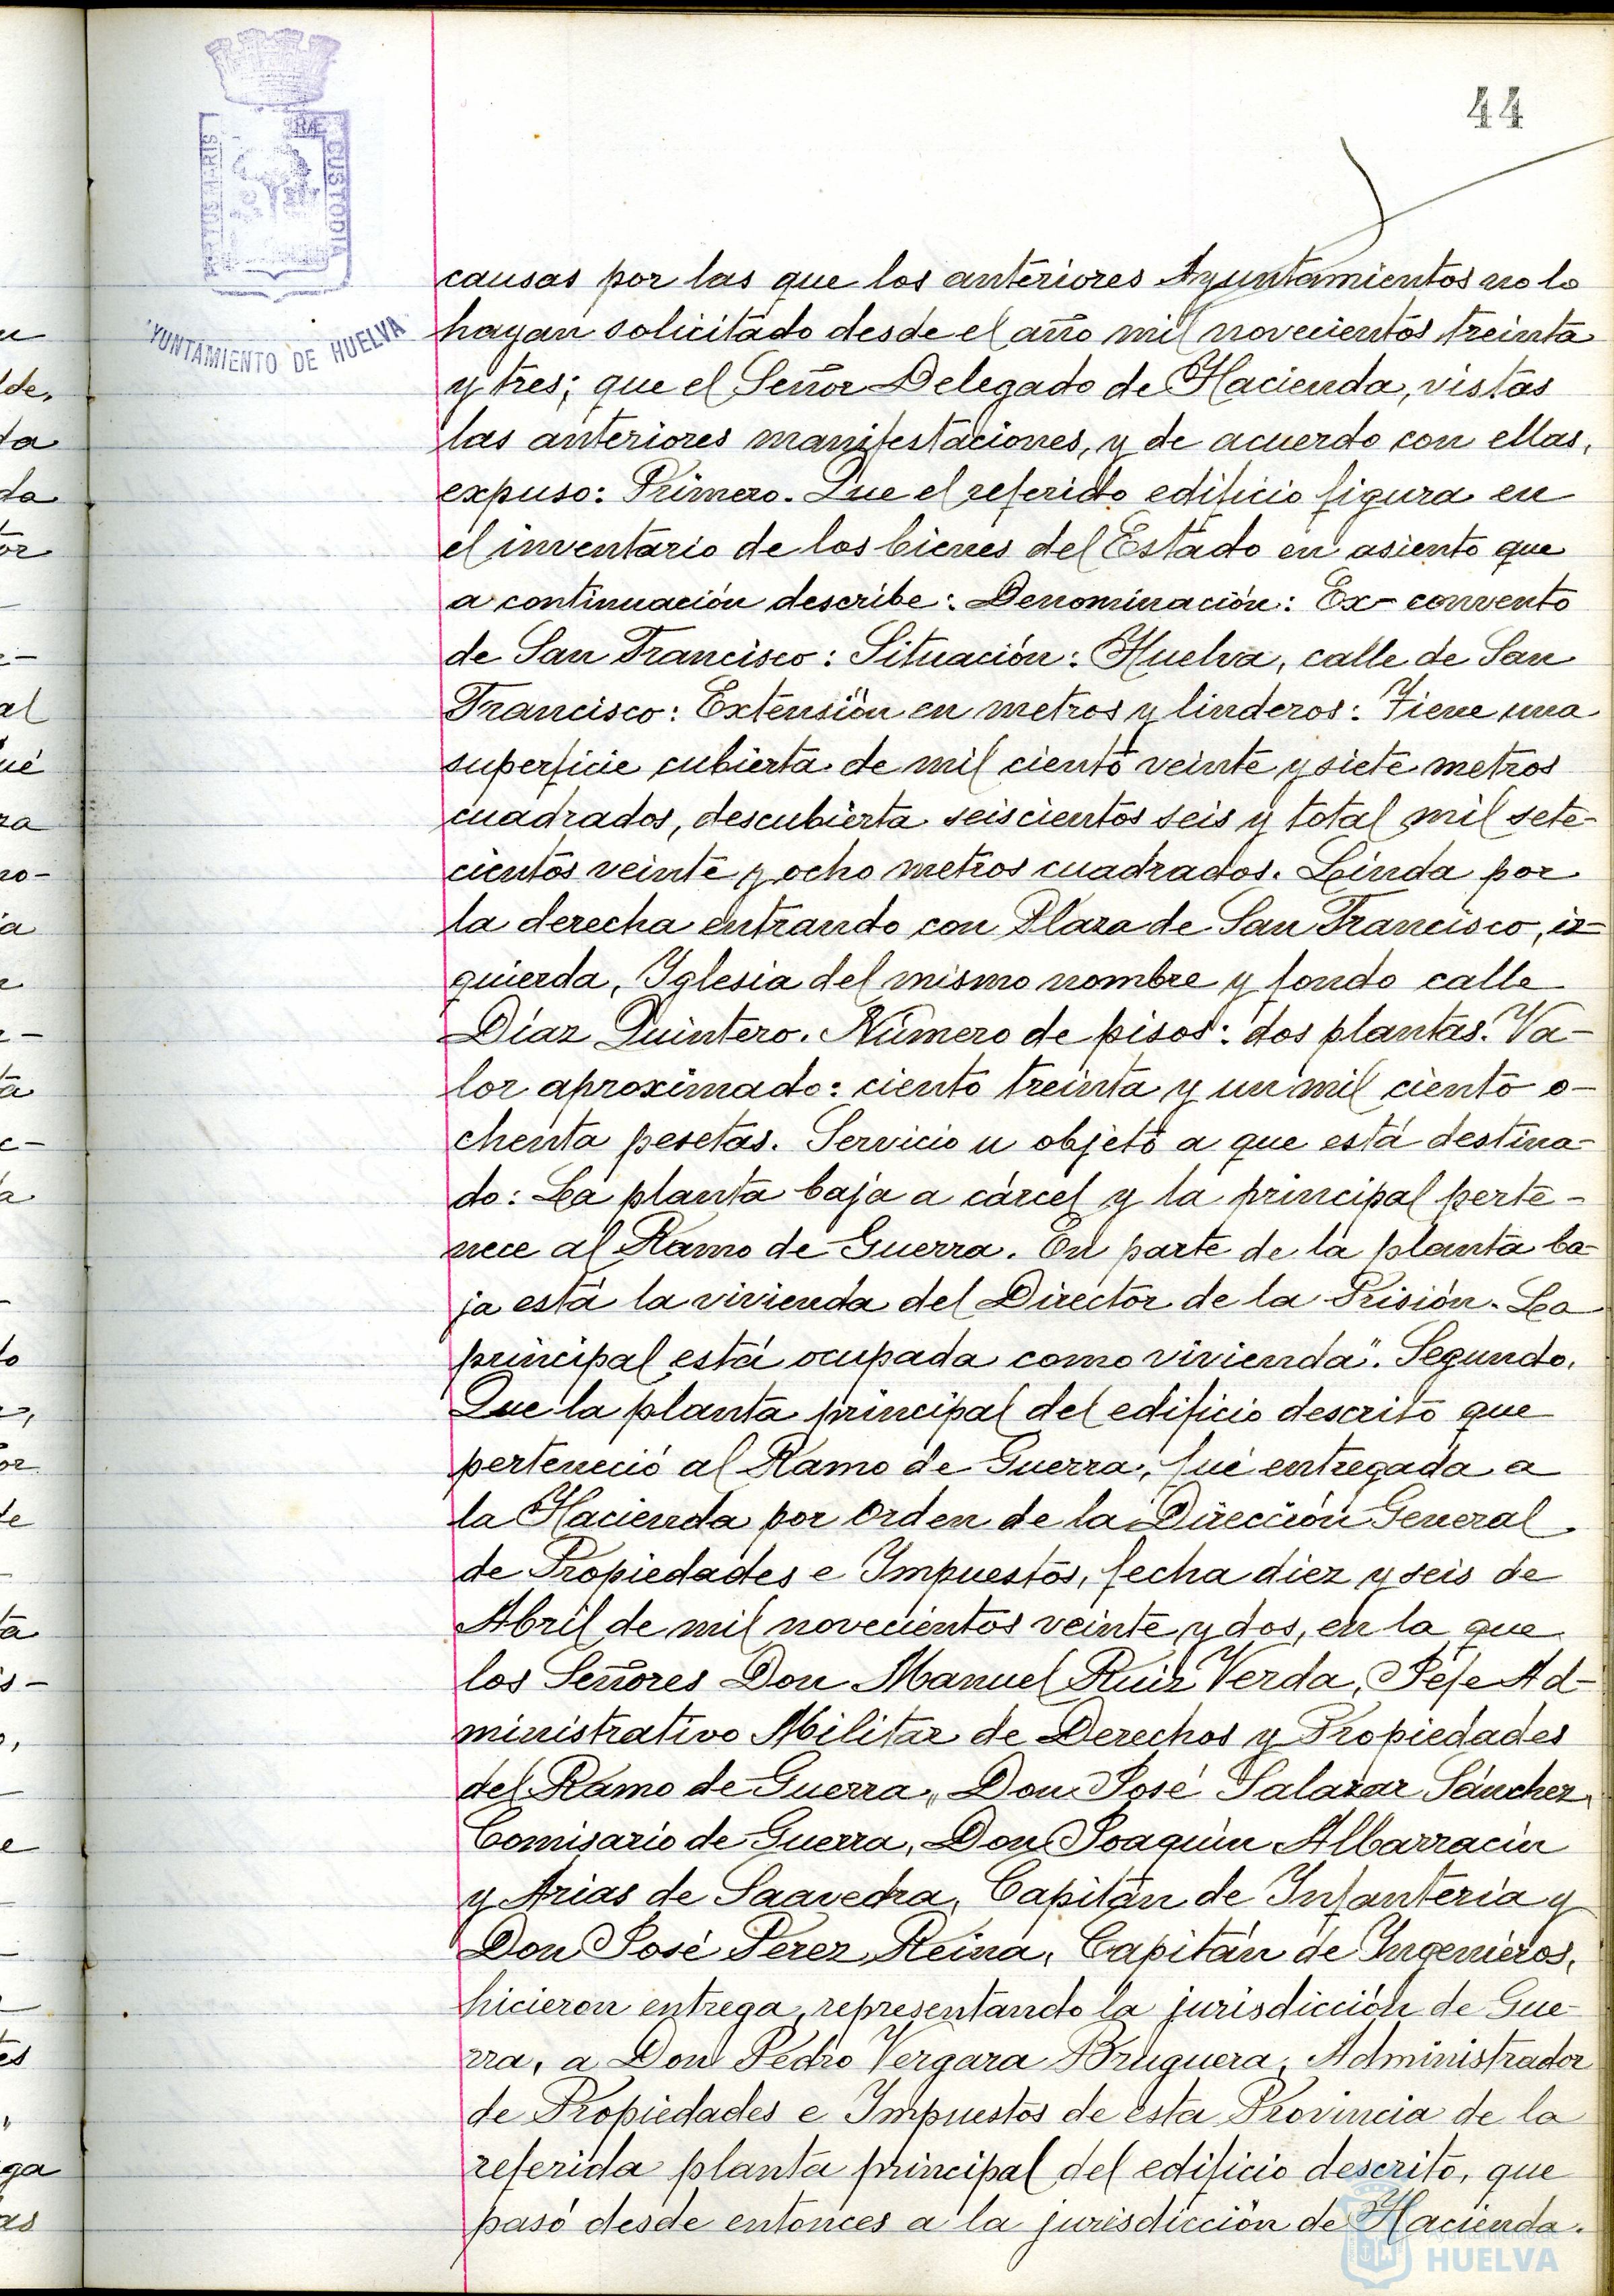 44
RÆ
CUSTODIA
YUNTAMIENTO DE HUELVA
causas por las que los anteriores Ayuntamientos no lo
hayan solicitado desde el año mil novecientos treinta
y tres; que el Señor Delegado de Hacienda, vistas
las anteriores manifestaciones, y de acuerdo con ellas,
expuso: Primero. Que el referido edificio figura en
el inventario de los bienes del Estado en asiento que
a continuación describe: Denominación: Ex-convento
de San Francisco: Situación: Huelva, calle de San
Francisco: Extensión en metros y linderos: Tiene una
superficie cubierta de mil ciento veinte y siete metros
cuadrados, descubierta seiscientos seis y total mil sete-
cientos veinte y ocho metros cuadrados. Linda por
la derecha entrando con Plaza de San Francisco, iz-
quierda, Iglesia del mismo nombre y fondo calle
Díaz Quintero. Número de pisos: dos plantas. Va-
lor aproximado: ciento treinta y un mil ciento o-
chenta pesetas. Servicio u objeto a que está destina-
do: La planta baja a cárcel y la principal perte-
nece al Ramo de Guerra. En parte de la planta ba-
ja está la vivienda del Director de la Prisión. La
principal está ocupada como vivienda". Segundo.
Que la planta principal del edificio descrito que
perteneció al Ramo de Guerra, fué entregada a
la Hacienda por Orden de la Dirección General
de Propiedades e Impuestos, fecha diez y seis de
Abril de mil novecientos veinte y dos, en la que
los Señores Don Manuel Ruiz Verda, Jefe Ad-
ministrativo Militar de Derechos y Propiedades
del Ramo de Guerra, Don José Salazar Sánchez,
Comisario de Guerra, Don Joaquín Albarracín
y Arias de Saavedra, Capitán de Infantería y
Don José Pérez Reina, Capitán de Ingenieros,
hicieron entrega, representando la jurisdicción de Gue-
rra, a Don Pedro Vergara Bruguera, Administrador
de Propiedades e Impuestos de esta Provincia de la
referida planta principal del edificio descrito, que
pasó desde entonces a la jurisdicción de Hacienda.
Ayuntamiento de
HUELVA